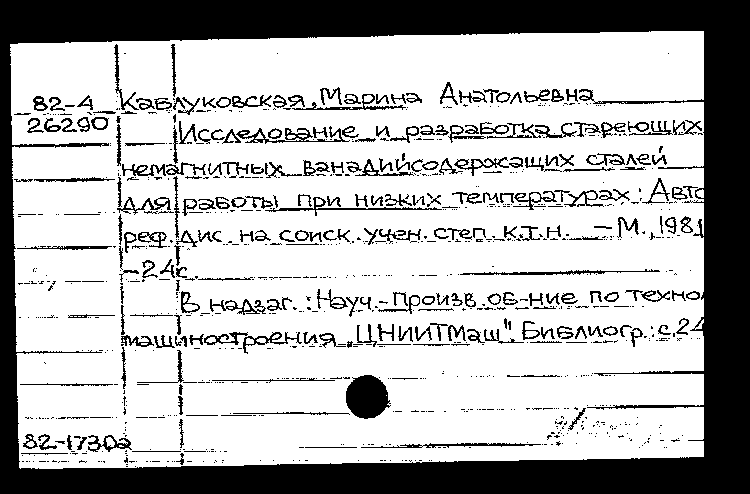 82-4 Каблуковская, Марина Анатольевна
26290
Исследование и разработка стареющих
немагнитных ванадийсодержащих сталей
для работы при низких температурах: Авто
реф. дис. на соиск. учен. степ. к.т.н. – М., 1981
–24с.
В надзаг.: Науч.-произв. об-ние по техно
машиностроения „ЦНИИТМаш". Библиогр.: с.24
82-17302